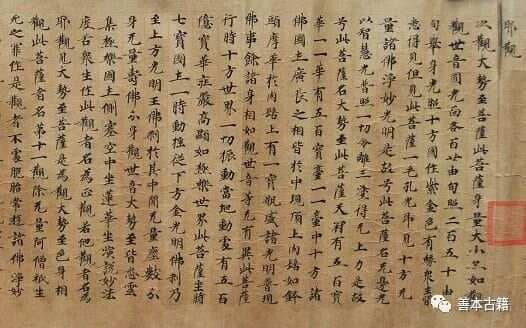 耶觀
次觀大勢至菩薩此菩薩身量大小亦如
觀世音圓光面各百廿由旬照二百五十由
旬舉身光照十方國作紫金色有緣衆生
悉得見但見此菩薩一毛孔光即見十方无
量諸佛淨妙光明是故号此菩薩名无邊光
以智慧光普照一切令離三塗得无上力是故
号此菩薩名大勢至此菩薩天冠有五百寶
華一一華有五百寶臺一一臺中十方諸
佛國土廣長之相皆於中現頂上肉髻如鉢
頭摩華於肉髻上有一寶瓶盛諸光明普現
佛事餘諸身相如觀世音等无有異此菩薩
行時十方世界一切振動當地動處有五百
億寶華莊嚴高顯如極樂世界此菩薩坐時
七寶國土一時動搖從下方金光明佛刹乃
至上方光明王佛刹於其中間无量塵數分
身无量壽佛分身觀世音大勢至皆悉雲
集極樂國土側塞空中坐蓮華坐演說妙法
度苦衆生作此觀者名為正觀若他觀者名為
耶觀見大勢至菩薩是為觀大勢至色身相
觀此菩薩者名第十一觀除无量阿僧祇生
死之罪作是觀者不處胞胎常遊諸佛淨妙
善本古籍